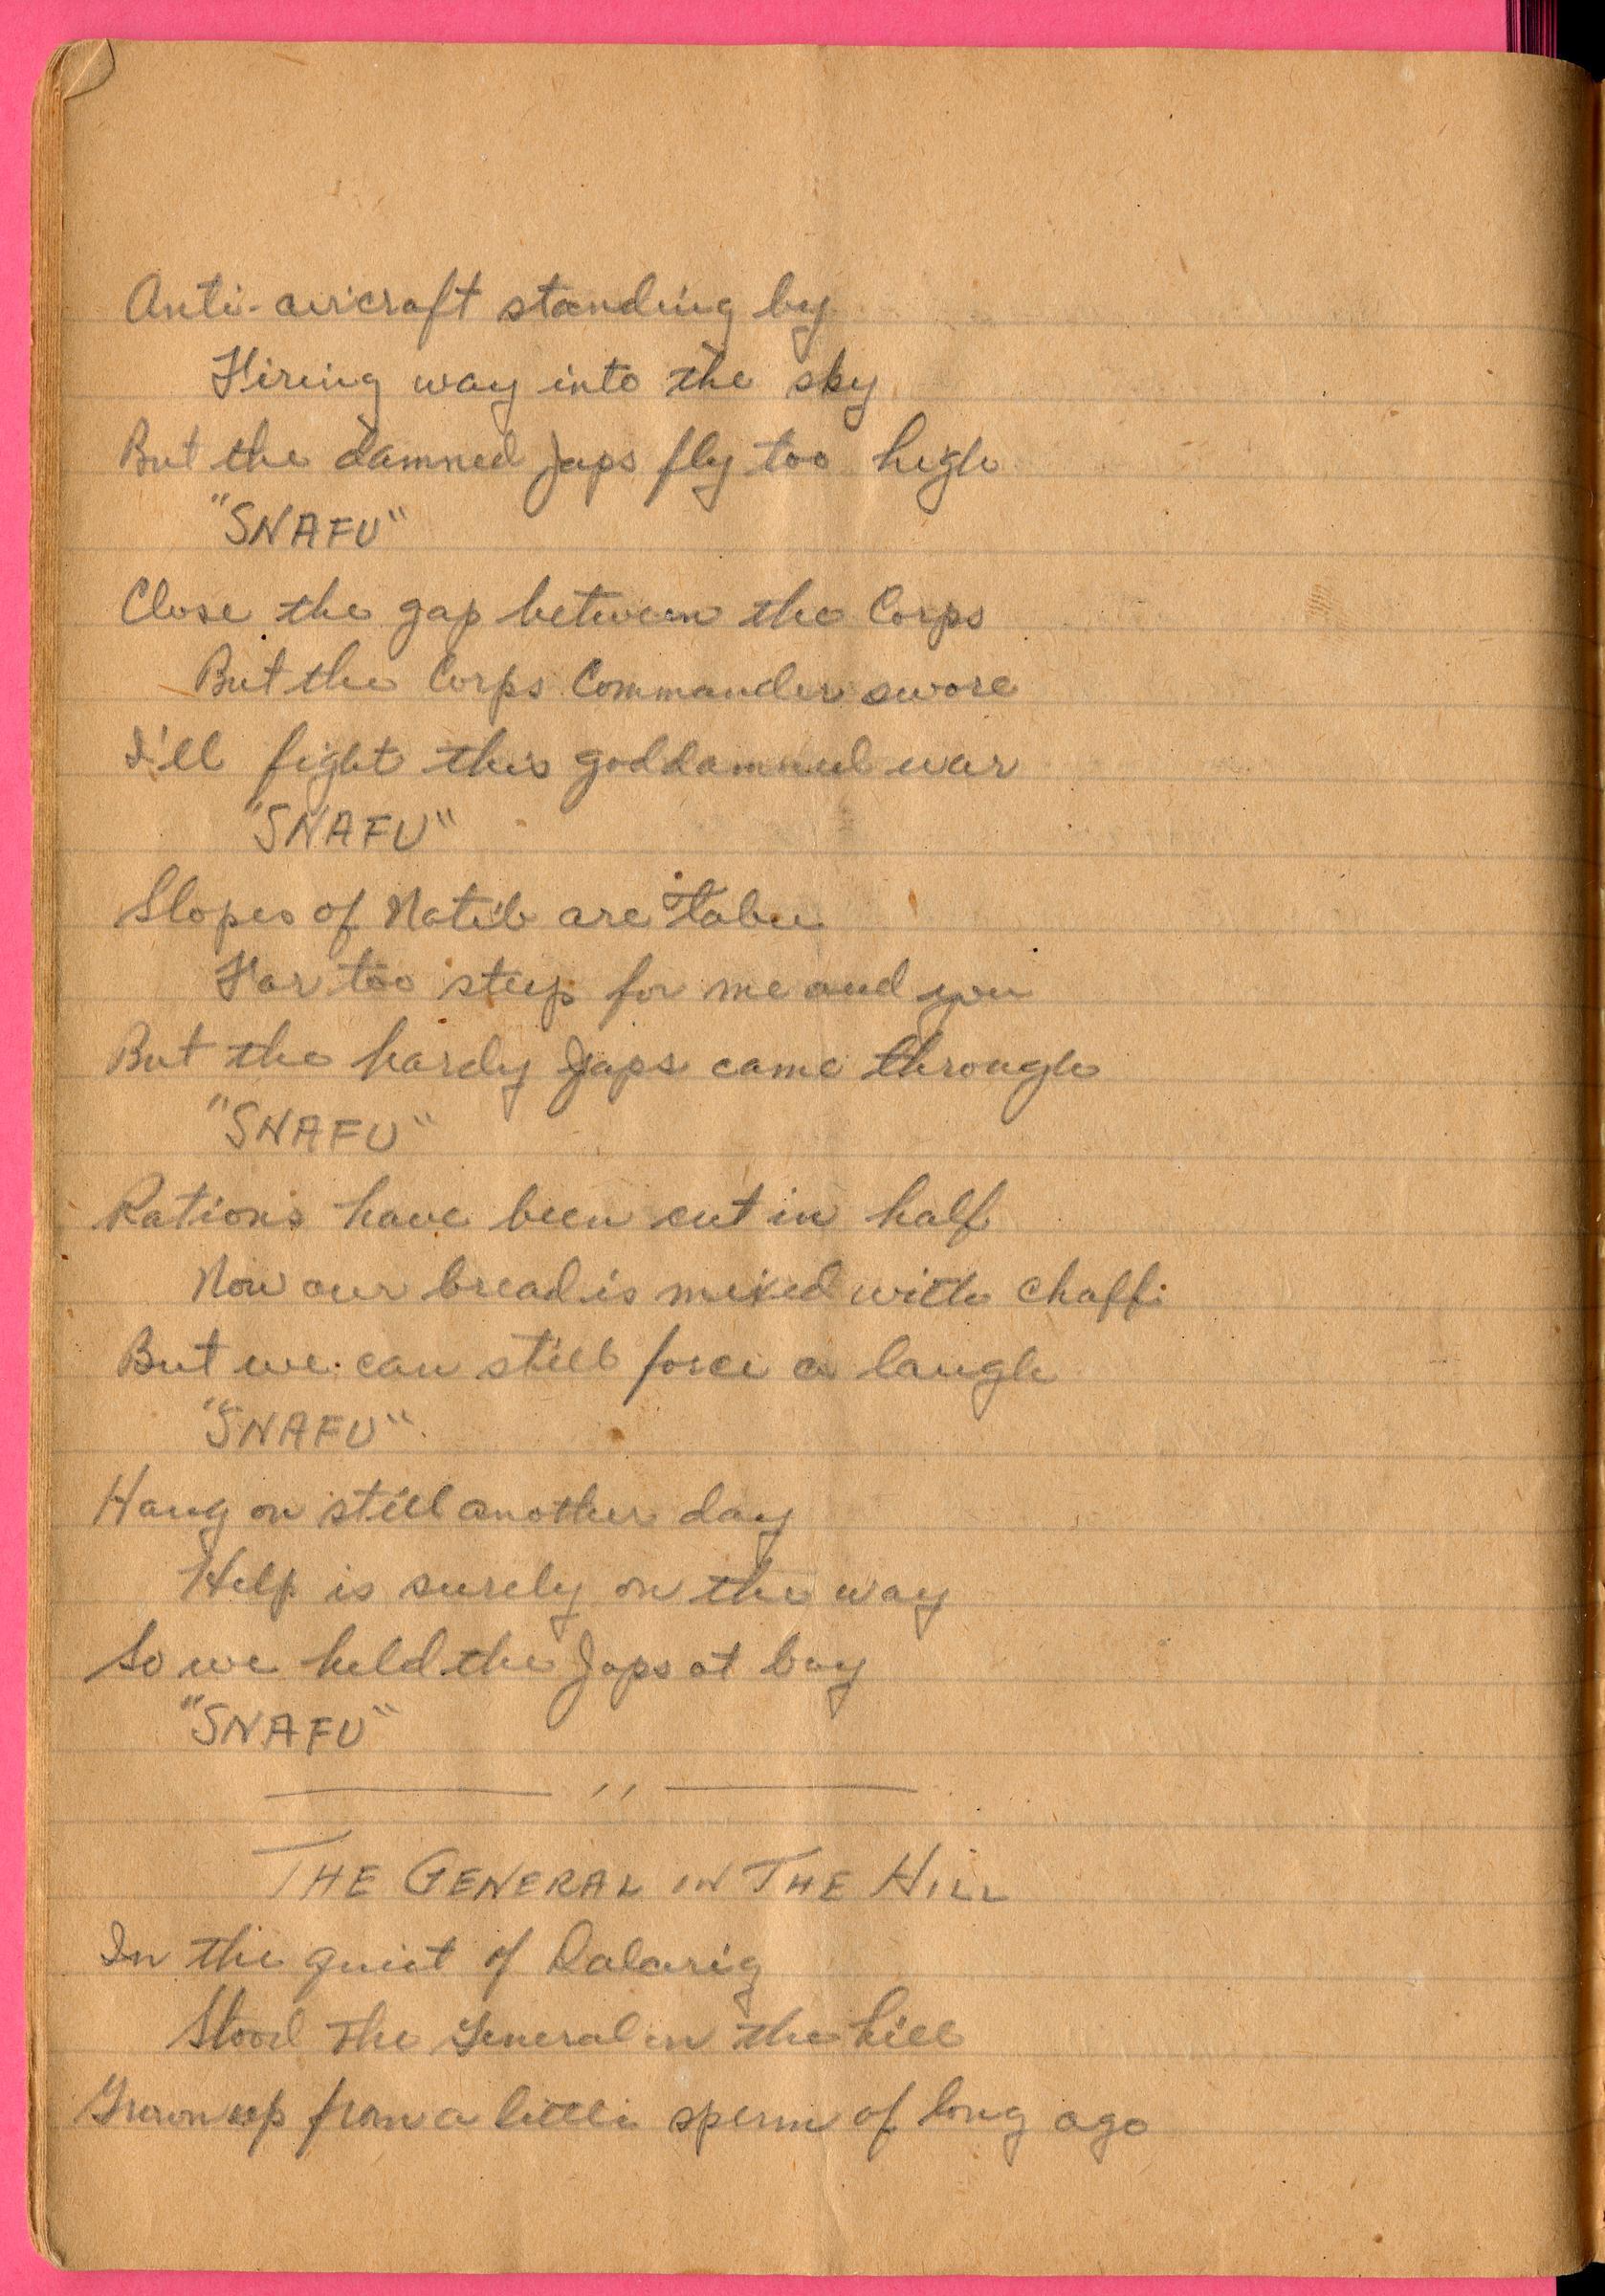 Anti-aircraft standing by
Firing way into the sky
But the damned Japs fly too high
"SNAFU"
Close the gap between the Corps
But the Corps Commander swore
I'll fight this goddamned war
"SNAFU"
Slopes of Natib are tabu
Far too steep for me and you
But the hardy Japs came through
"SNAFU"
Rations have been cut in half
Now our bread is mixed with chaff
But we can still force a laugh
"SNAFU"
Hang on still another day
Help is surely on the way
So we held the Japs at bay
"SNAFU"
THE GENERAL IN THE HILL
In the quiet of
Stood the General in the hill
Grown up from a little sperm of long ago